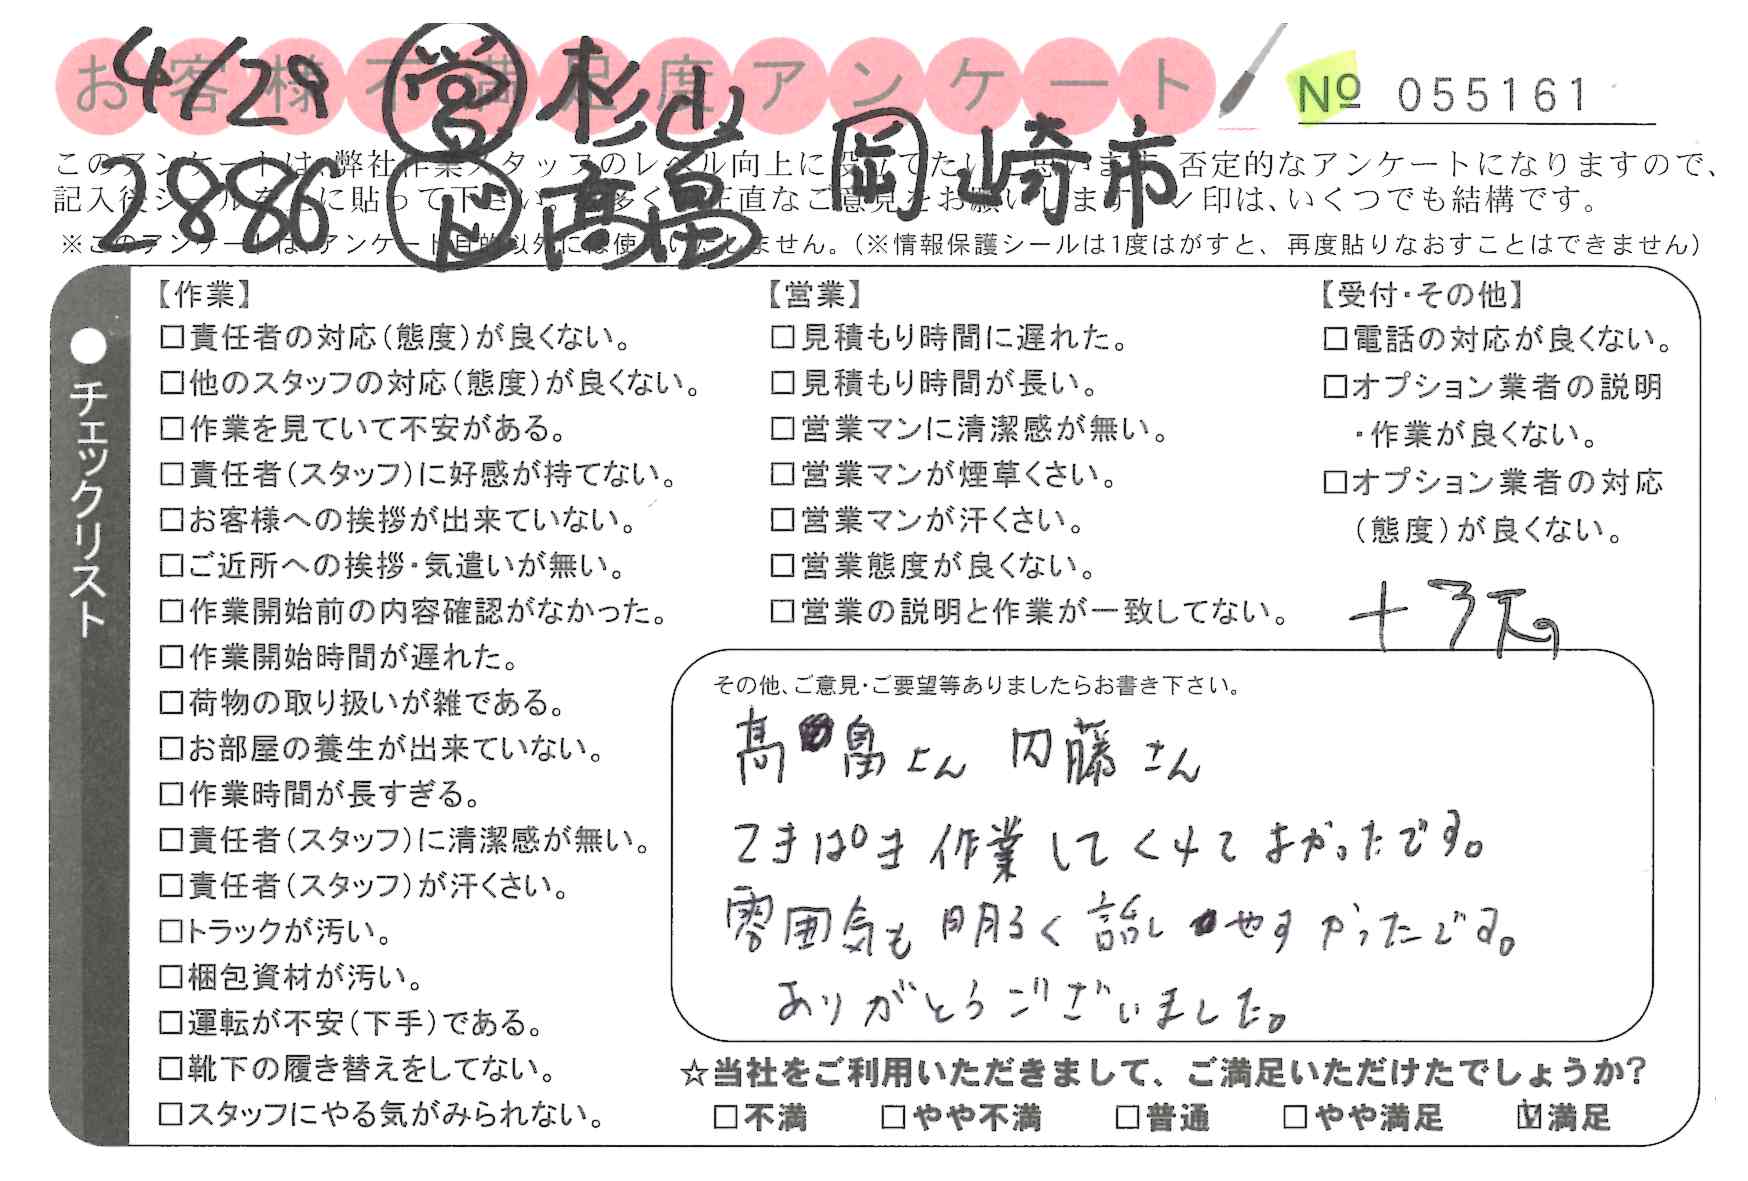 お客様不満足度アンケート
4/29 営 杉山
№ 055161
2886 ド 高畠 岡崎市
このアンケートは、弊社作業スタッフのレベル向上に役立てたいと思います。否定的なアンケートになりますので、
記入後シールを上に貼って下さい。数多くの正直なご意見をお願いします。レ印は、いくつでも結構です。
※このアンケートは、アンケート目的以外には使用いたしません。(※情報保護シールは1度はがすと、再度貼りなおすことはできません)
●チェックリスト
【作業】
□責任者の対応(態度)が良くない。
□他のスタッフの対応(態度)が良くない。
□作業を見ていて不安がある。
□責任者(スタッフ)に好感が持てない。
□お客様への挨拶が出来ていない。
□ご近所への挨拶・気遣いが無い。
□作業開始前の内容確認がなかった。
□作業開始時間が遅れた。
□荷物の取り扱いが雑である。
□お部屋の養生が出来ていない。
□作業時間が長すぎる。
□責任者(スタッフ)に清潔感が無い。
□責任者(スタッフ)が汗くさい。
□トラックが汚い。
□梱包資材が汚い。
□運転が不安(下手)である。
□靴下の履き替えをしてない。
□スタッフにやる気がみられない。
【営業】
□見積もり時間に遅れた。
□見積もり時間が長い。
□営業マンに清潔感が無い。
□営業マンが煙草くさい。
□営業マンが汗くさい。
□営業態度が良くない。
□営業の説明と作業が一致してない。
【受付・その他】
□電話の対応が良くない。
□オプション業者の説明
・作業が良くない。
□オプション業者の対応
(態度)が良くない。
その他、ご意見・ご要望等ありましたらお書き下さい。
高畠さん 内藤さん
てきぱき作業してくれてよかったです。
雰囲気も明るく話しやすかったです。
ありがとうございました。
☆当社をご利用いただきまして、ご満足いただけたでしょうか?
□不満 □やや不満 □普通 □やや満足 ☑満足